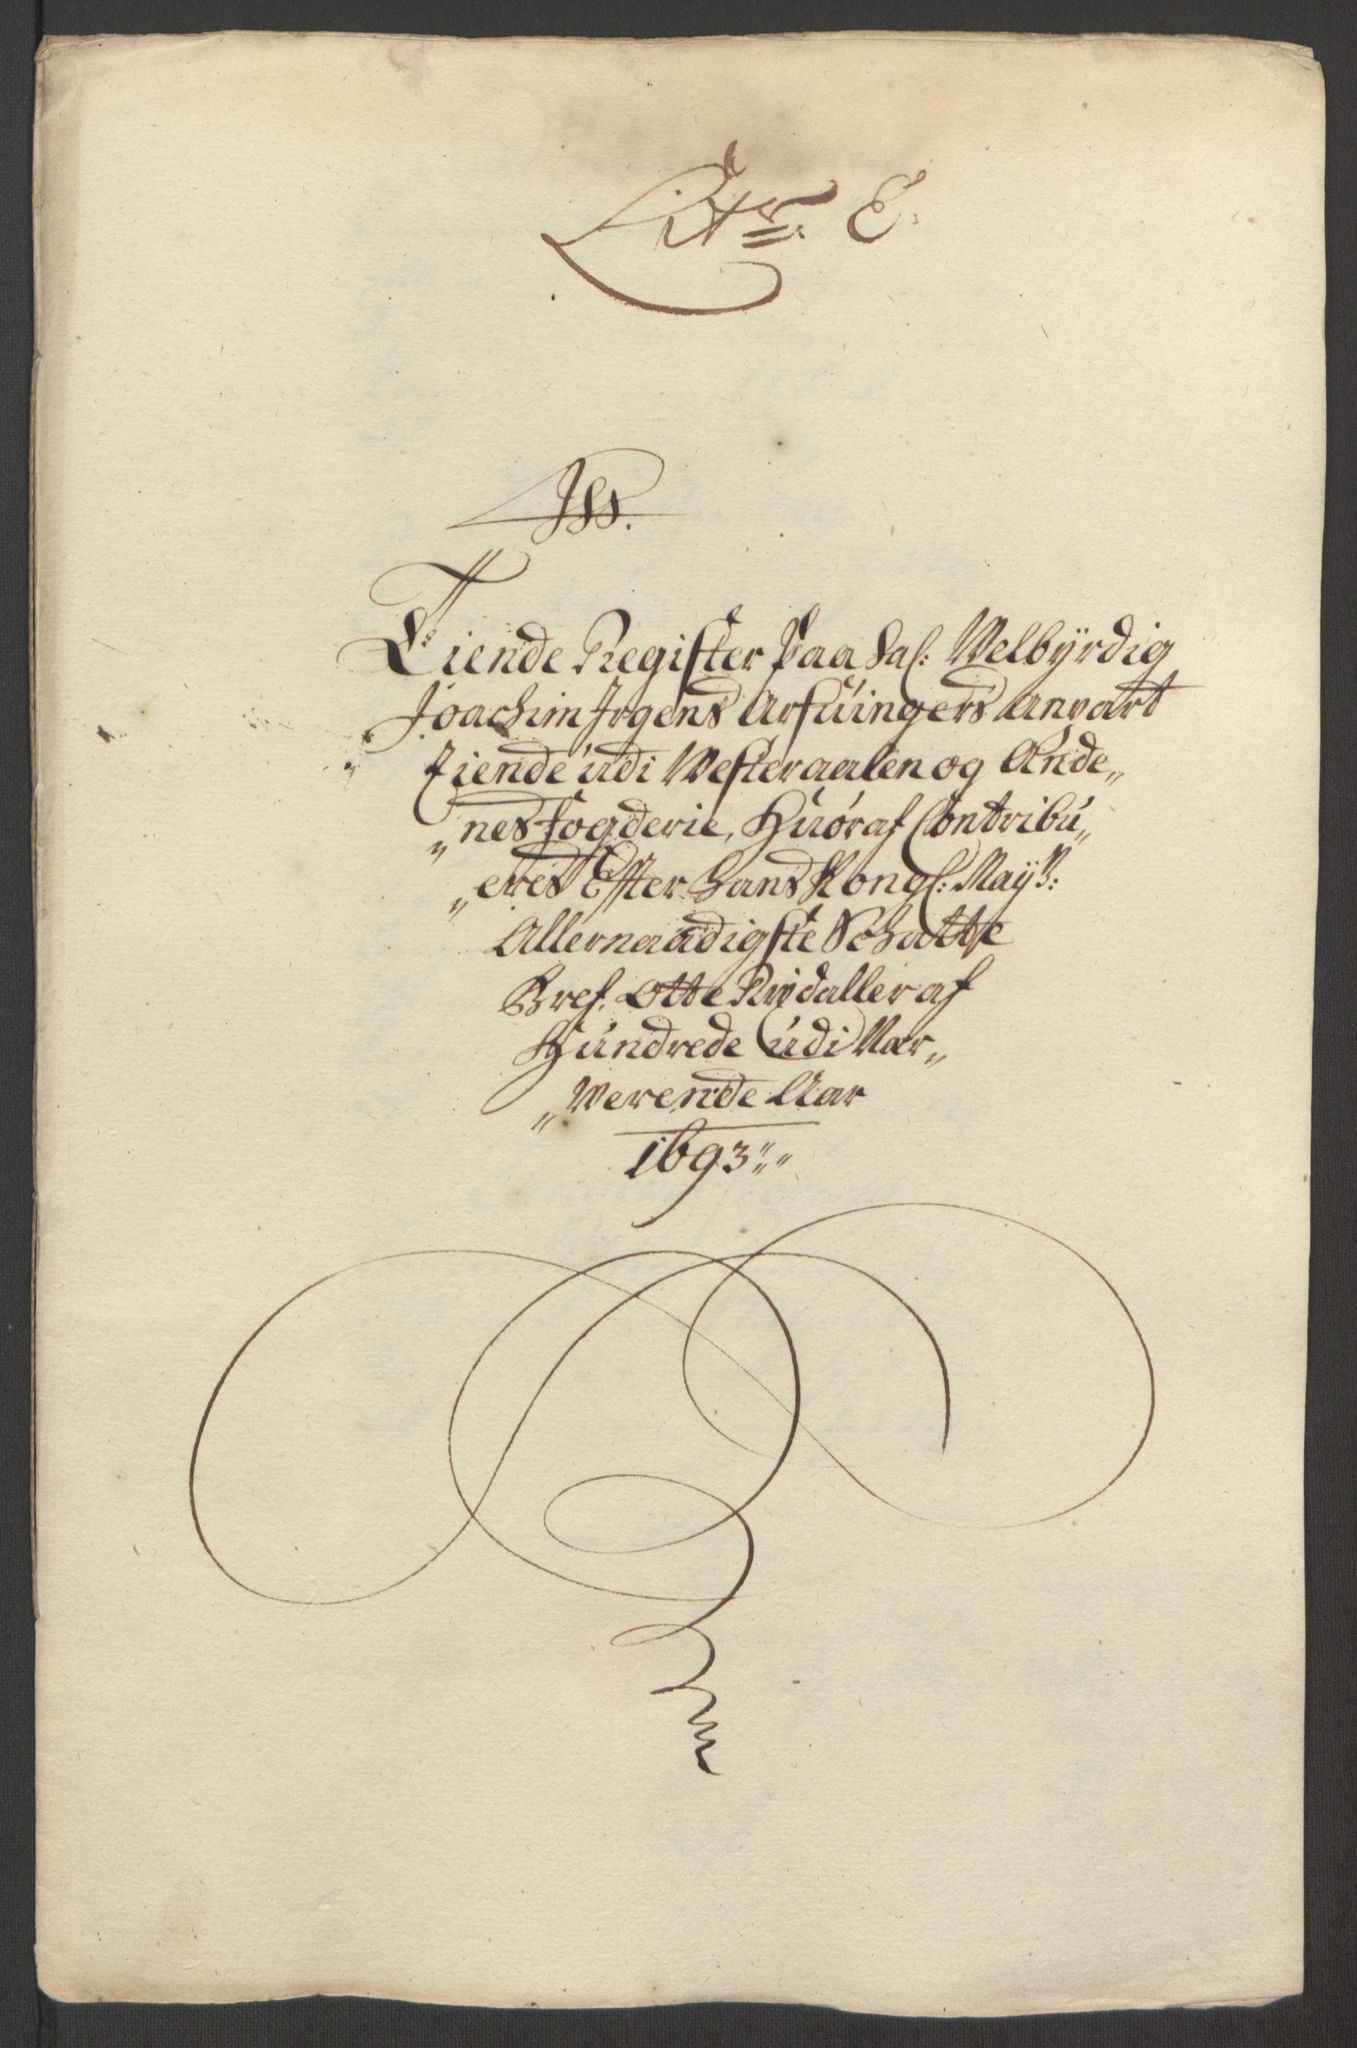 Litr: E:
Tiende Register Paa Sal: Welbÿrdig
Joachim Irgens Arfuingers Anpart
Tiende udi Westeraalen og Ande„
„nes fogderie, Huoraf Contribu„
„eres Efter Hans Kongl: Mayts:
Allernaadigste Schatte
Bref. Otte Rixdaller af
Hundrede udi Nær„
„Werende Aar
1693„„